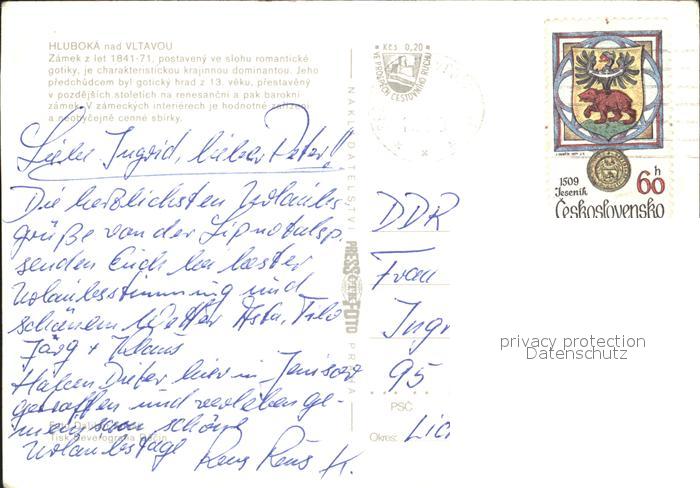 HLUBOKÁ nad VLTAVOU
Zámek z let 1841-71, postavený ve slohu romantické
gotiky, je charakteristickou krajinnou dominantou. Jeho
předchůdcem byl gotický hrad z 13. věku, přestavěný
v pozdějších stoletích na renesanční a pak barokní
zámek. V zámeckých interiérech je hodnotné zařízení
a neobyčejně cenné sbírky.
Kčs 0,20
1509
Jeseník
60 h
Československo
NAKLADATELSTVÍ
PRESSFOTO
PRAHA
Liebe Ingrid, lieber Peter!!
Die herzlichsten Urlaubs-
grüße von der Lipnotalsp.
senden Euch bei bester
Urlaubsstimmung und
schönem Wetter Asta, Filo
Jörg + Klaus
Haben Dieter hier in
getroffen und verleben ge-
meinsam schöne
Urlaubstage
DDR
Frau
Ingr
95
PSČ
Okres: Lic
Tisk Severografia Děčín
privacy protection
Datenschutz